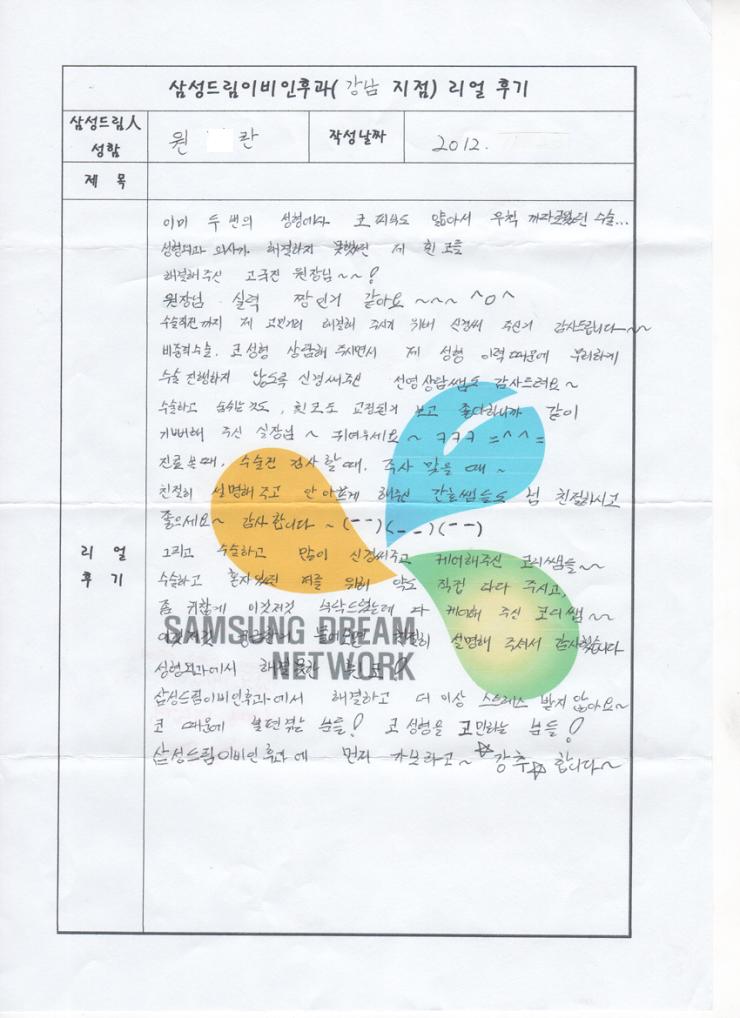 삼성드림이비인후과( 강남 지점) 리얼 후기
삼성드림人
성함
원 란
작성날짜
2012.
제 목
리 얼
후 기
이미 두 번의 성형에다 코 피부도 얇아서 무척 까다로웠던 수술...
성형외과 의사가 해결하지 못했던 제 휜 코를
해결해 주신 고국진 원장님~~!
원장님 실력 짱인거 같아요 ~~~ ^o^
수술직전까지 제 고민거리 해결해 주시기 위해 신경써 주신거 감사드립니다~~
비중격수술, 코성형 상담해 주시면서 제 성형 이력 때문에 무리하게
수술 진행하지 않도록 신경써주신 선영상담쌤도 감사드려요~
수술하고 숨쉬는것도, 휜코도 교정된거 보고 좋다하니까 같이
기뻐해 주신 실장님~ 귀여우세요~ ㅋㅋㅋ =^^=
진료 볼때, 수술전 검사할때, 주사 맞을 때~
친절히 설명해 주고 안 아프게 해주신 간호쌤들도 넘 친절하시고
좋으세요~ 감사합니다~ (--)(__)(--)
그리고 수술하고 많이 신경써주고 케어해주신 코디쌤들~
수술하고 혼자 있던 저를 위해 약도 직접 다 주시고,
좀 귀찮게 이것저것 부탁드렸는데 다 케어해 주신 코디쌤~~
이것저것 물어보면 친절히 설명해 주셔서 감사했습니다
성형외과에서 해결못한 휜코!
삼성드림이비인후과에서 해결하고 더 이상 스트레스 받지 않아요~
코 때문에 불편겪는 분들! 코 성형을 고민하는 분들!
삼성드림이비인후과에 먼저 가보라고~ ☆강추☆ 합니다~
SAMSUNG DREAM
NETWORK